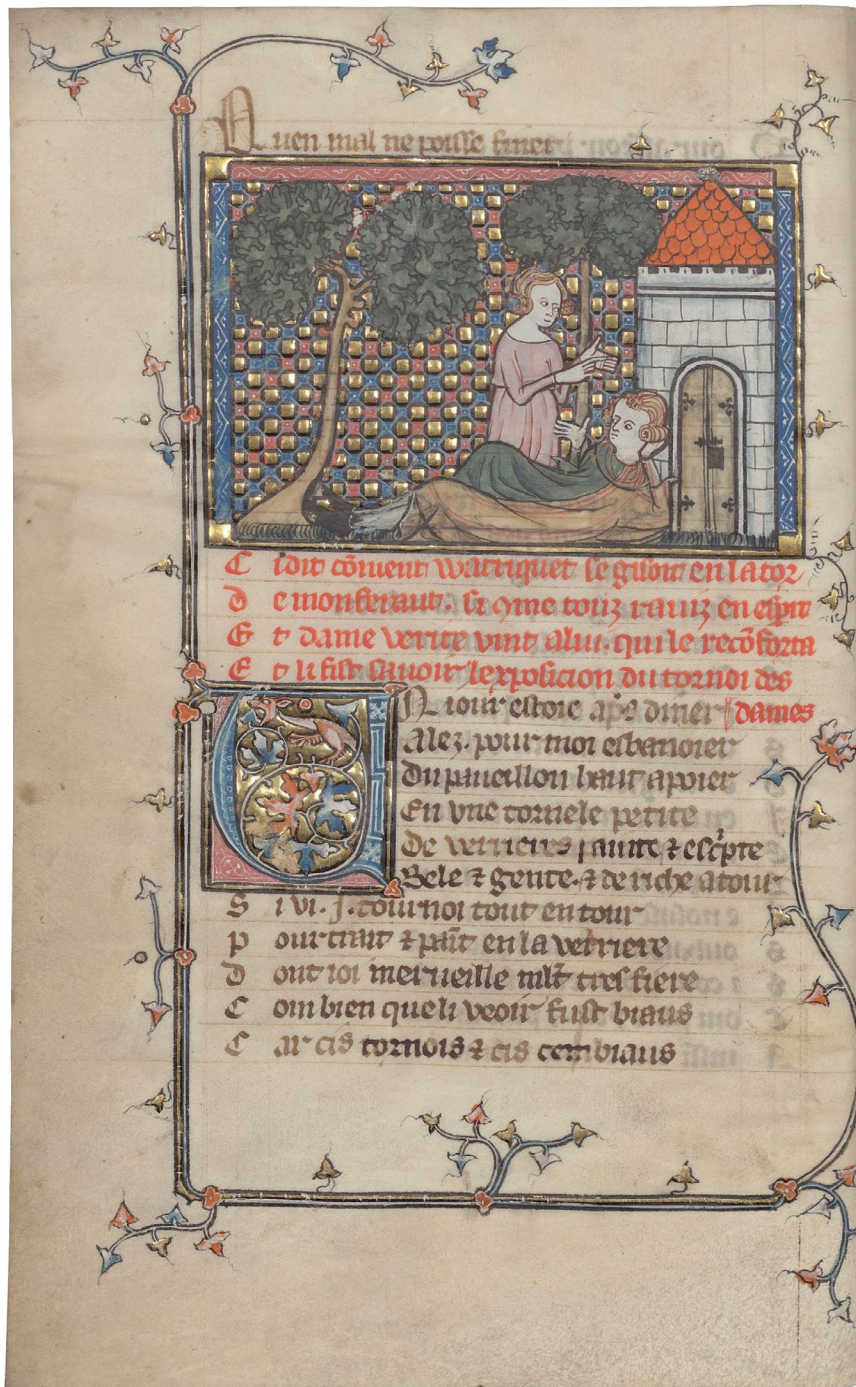 Quen mal ne poisse finer
Ci dit cōment watriquet se gisoit en la tor
De monferaut. si 9me touz rauiz en esprit
Et dame verite vint a lui. qui le recōforta
Et li fist sauoir lexposicion du tornoi des
dames
UN iour estoie ap̄s diner
Alez. pour moi esbanoier
Du paueillon haut apoier
En vne tornele petite
De verrieres painte ⁊ escͥpte
Bele ⁊ gente. ⁊ de riche atour
Si vi .j. tournoi tout entour
Pourtrait ⁊ paīt en la verriere
Dont ioi merueille ml̄t tres fiere
Combien que li veoir fust biaus
Car cis tornois ⁊ cis cembiaus